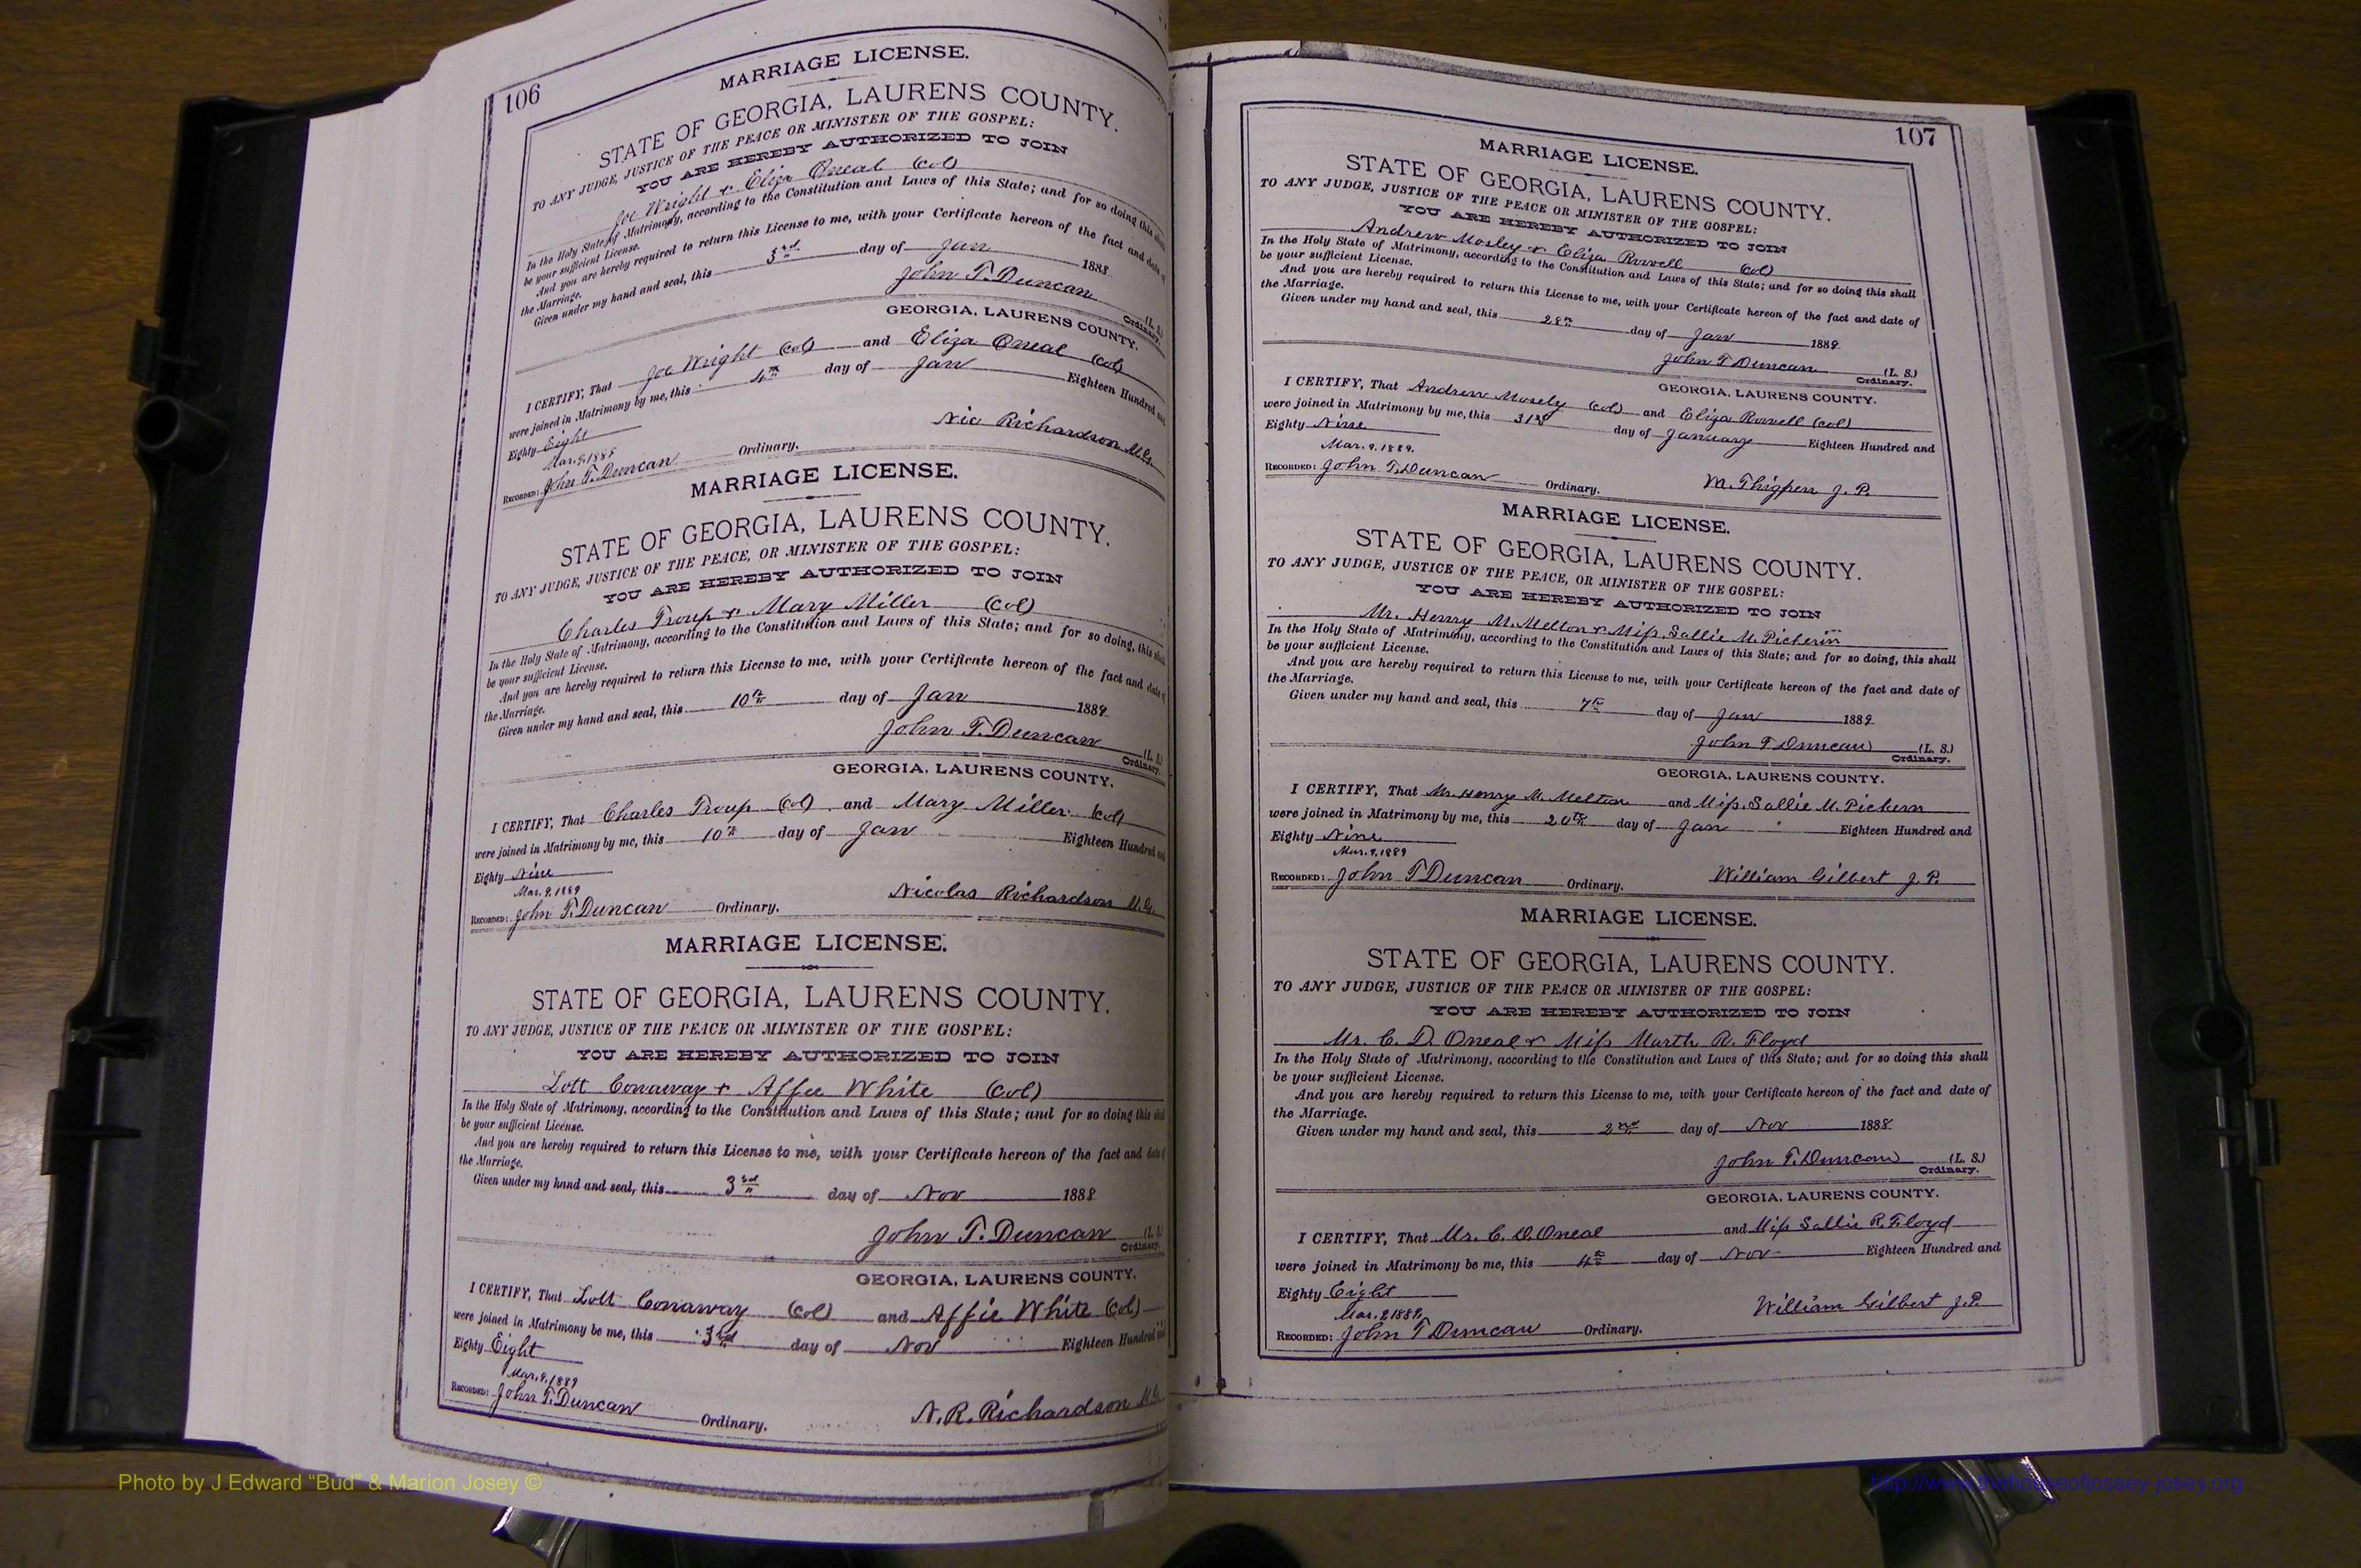 106
MARRIAGE LICENSE.
STATE OF GEORGIA, LAURENS COUNTY.
TO ANY JUDGE, JUSTICE OF THE PEACE OR MINISTER OF THE GOSPEL:
YOU ARE HEREBY AUTHORIZED TO JOIN
Joe Wright & Eliza Oneal (Col)
In the Holy State of Matrimony, according to the Constitution and Laws of this State; and for so doing this
be your sufficient License.
And you are hereby required to return this License to me, with your Certificate hereon of the fact and date of
the Marriage.
Given under my hand and seal, this 3rd day of Jan 1888
John T. Duncan (L. S.)
Ordinary.
GEORGIA, LAURENS COUNTY.
I CERTIFY, That Joe Wright (Col) and Eliza Oneal (Col)
were joined in Matrimony by me, this 4th day of Jan Eighteen Hundred
Eighty Eight
Mar. 9, 1889 Nic Richardson M.G.
RECORDED: John T. Duncan Ordinary.
MARRIAGE LICENSE.
STATE OF GEORGIA, LAURENS COUNTY.
TO ANY JUDGE, JUSTICE OF THE PEACE, OR MINISTER OF THE GOSPEL:
YOU ARE HEREBY AUTHORIZED TO JOIN
Charles Troup & Mary Miller (Col)
In the Holy State of Matrimony, according to the Constitution and Laws of this State; and for so doing, this
be your sufficient License.
And you are hereby required to return this License to me, with your Certificate hereon of the fact and date of
the Marriage.
Given under my hand and seal, this 10th day of Jan 1889
John T. Duncan (L. S.)
Ordinary.
GEORGIA, LAURENS COUNTY.
I CERTIFY, That Charles Troup (Col) and Mary Miller (Col)
were joined in Matrimony by me, this 10th day of Jan Eighteen Hundred
Eighty Nine
Mar. 9, 1889 Nicolas Richardson M.G.
RECORDED: John T. Duncan Ordinary.
MARRIAGE LICENSE.
STATE OF GEORGIA, LAURENS COUNTY.
TO ANY JUDGE, JUSTICE OF THE PEACE OR MINISTER OF THE GOSPEL:
YOU ARE HEREBY AUTHORIZED TO JOIN
Lott Conaway & Affie White (Col)
In the Holy State of Matrimony, according to the Constitution and Laws of this State; and for so doing this
be your sufficient License.
And you are hereby required to return this License to me, with your Certificate hereon of the fact and date
the Marriage.
Given under my hand and seal, this 3rd day of Nov 1888
John T. Duncan (L. S.)
Ordinary.
GEORGIA, LAURENS COUNTY.
I CERTIFY, That Lott Conaway (Col) and Affie White (Col)
were joined in Matrimony be me, this 3rd day of Nov Eighteen Hundred
Eighty Eight
Mar. 9, 1889
RECORDED: John T. Duncan Ordinary. N. R. Richardson M.G.
107
MARRIAGE LICENSE.
STATE OF GEORGIA, LAURENS COUNTY.
TO ANY JUDGE, JUSTICE OF THE PEACE OR MINISTER OF THE GOSPEL:
YOU ARE HEREBY AUTHORIZED TO JOIN
Andrew Mosley & Eliza Rowell (Col)
In the Holy State of Matrimony, according to the Constitution and Laws of this State; and for so doing this shall
be your sufficient License.
And you are hereby required to return this License to me, with your Certificate hereon of the fact and date of
the Marriage.
Given under my hand and seal, this 28th day of Jan 1889
John T Duncan (L. S.)
Ordinary.
GEORGIA, LAURENS COUNTY.
I CERTIFY, That Andrew Mosely (Col) and Eliza Rowell (Col)
were joined in Matrimony by me, this 31st day of January Eighteen Hundred and
Eighty Nine
Mar. 9. 1889.
RECORDED: John T. Duncan Ordinary. M. Thigpen J. P.
MARRIAGE LICENSE.
STATE OF GEORGIA, LAURENS COUNTY.
TO ANY JUDGE, JUSTICE OF THE PEACE, OR MINISTER OF THE GOSPEL:
YOU ARE HEREBY AUTHORIZED TO JOIN
Mr. Henry M. Melton & Miss. Sallie M. Pickerin
In the Holy State of Matrimony, according to the Constitution and Laws of this State; and for so doing, this shall
be your sufficient License.
And you are hereby required to return this License to me, with your Certificate hereon of the fact and date of
the Marriage.
Given under my hand and seal, this 7th day of Jan 1889
John T Duncan (L. S.)
Ordinary.
GEORGIA, LAURENS COUNTY.
I CERTIFY, That Mr. Henry M. Melton and Miss. Sallie M. Pickern
were joined in Matrimony by me, this 20th day of Jan Eighteen Hundred and
Eighty Nine
Mar. 9, 1889
RECORDED: John T Duncan Ordinary. William Gilbert J. P.
MARRIAGE LICENSE.
STATE OF GEORGIA, LAURENS COUNTY.
TO ANY JUDGE, JUSTICE OF THE PEACE OR MINISTER OF THE GOSPEL:
YOU ARE HEREBY AUTHORIZED TO JOIN
Mr. C. D. Oneal & Miss Marth R. Floyd
In the Holy State of Matrimony, according to the Constitution and Laws of this State; and for so doing this shall
be your sufficient License.
And you are hereby required to return this License to me, with your Certificate hereon of the fact and date of
the Marriage.
Given under my hand and seal, this 2nd day of Nov 1888
John T. Duncan (L. S.)
Ordinary.
GEORGIA, LAURENS COUNTY.
I CERTIFY, That Mr. C. D. Oneal and Miss Sallie R. Floyd
were joined in Matrimony be me, this 4th day of Nov Eighteen Hundred and
Eighty Eight
Mar. 9 1889. William Gilbert J. P.
RECORDED: John T Duncan Ordinary.
Photo by J Edward “Bud” & Marion Josey ©
http://www.thehouseofjossey-josey.org